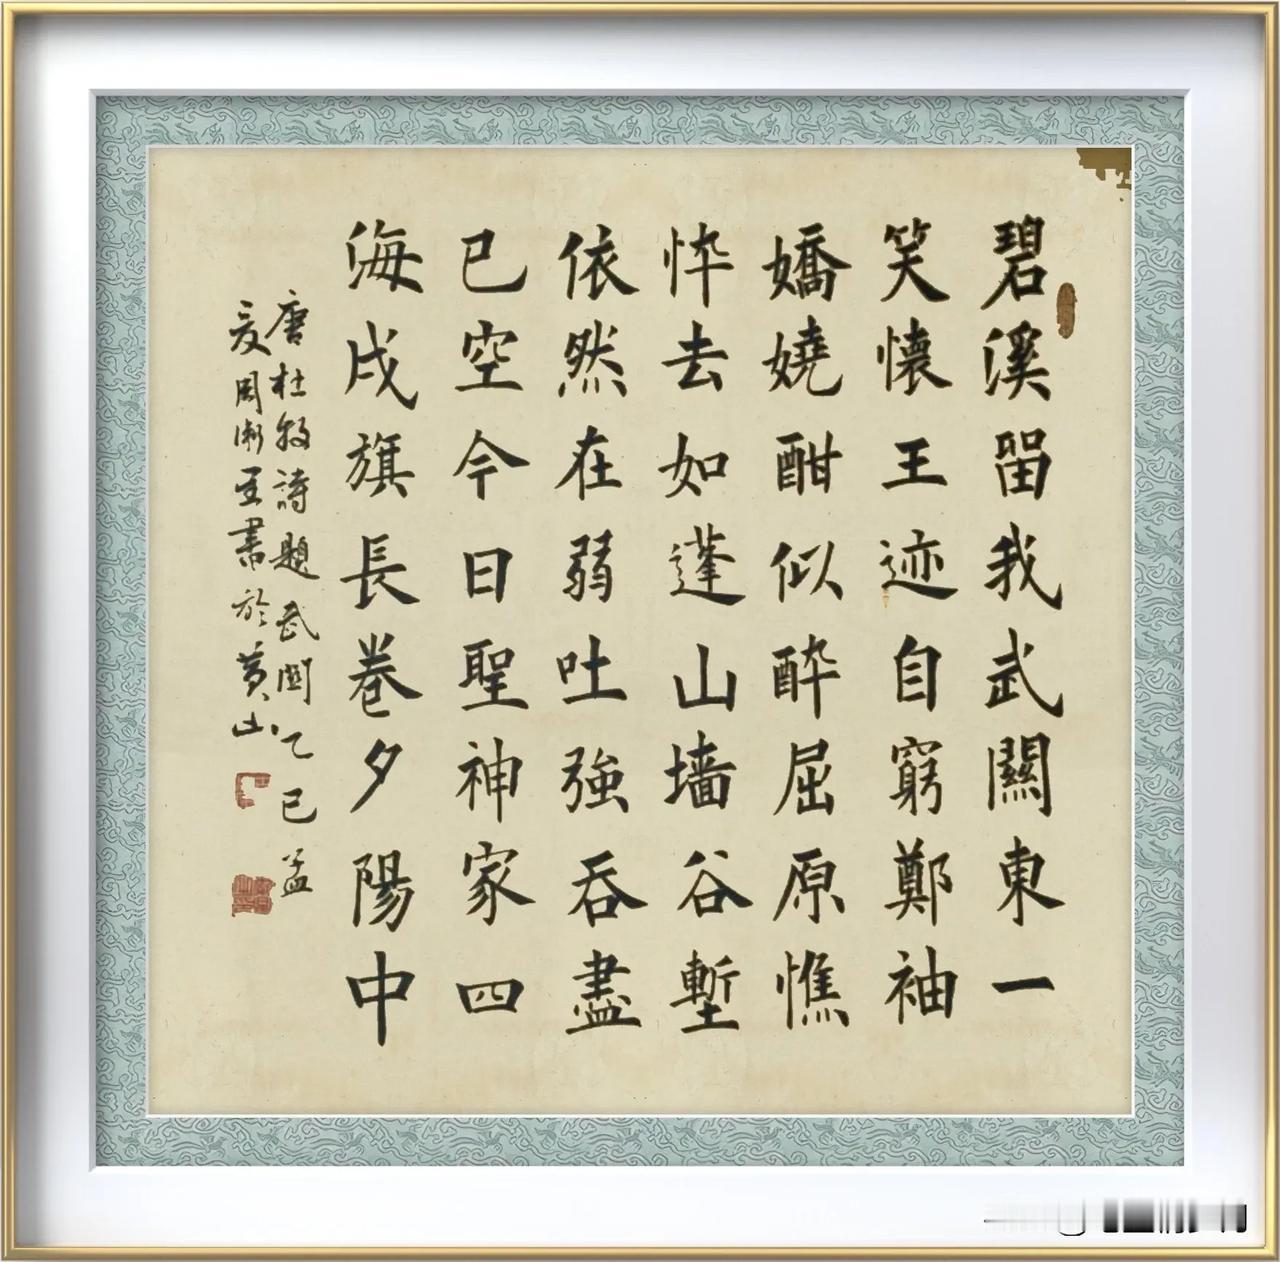 碧溪留我武關東一
笑懷王迹自窮鄭袖
嬌嬈酣似醉屈原憔
忰去如蓬山墙谷塹
依然在弱吐強吞盡
已空今日聖神家四
海戍旗長卷夕陽中
唐杜牧詩題武關乙巳孟
夏周書於黄山